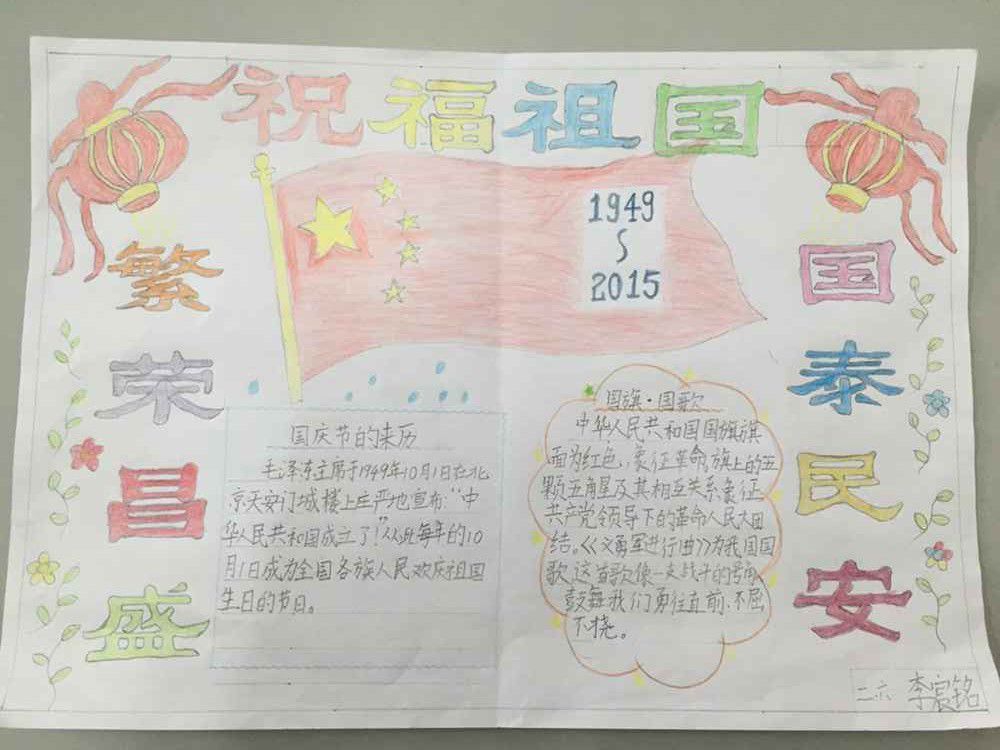 祝福祖国
1949
～
2015
繁荣昌盛
国泰民安
国庆节的来历
毛泽东主席于1949年10月1日在北
京天安门城楼上庄严地宣布:“中
华人民共和国成立了!”从此每年的10
月1日成为全国各族人民欢庆祖国
生日的节日。
国旗·国歌
中华人民共和国国旗旗
面为红色,象征革命,旗上的五
颗五角星及其相互关系象征
共产党领导下的革命人民大团
结。《义勇军进行曲》为我国国
歌,这首歌像一支战斗的号角,
鼓舞我们勇往直前、不屈
不挠。
二六 李宸铭